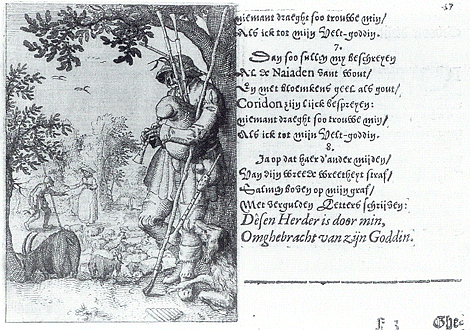 57
niemant draeght soo trouwe min/
Als ick tot mijn Velt-goddin.
7.
Dan soo sullen my beschreyen
Al de Naiaden vant wout/
En met bloemkens geel als gout/
Coridon zijn lijck bespreyen:
niemant draeght soo trouwe min/
Als ick tot mijn Velt-goddin.
8.
Ja op dat haer d'ander mijden/
Van dijn wreede wreetheyt straf/
Salmen boven op mijn graf/
Met vergulden Letters schrijven:
Desen Herder is door min,
Omghebracht van zijn Goddin.
F 3
Ghe